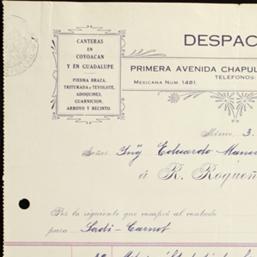 CANTERAS
EN
COYOACAN
Y EN GUADALUPE
PIEDRA BRAZA,
TRITURADA Y TEYOLOTE,
ADOQUINES,
GUARNICION,
ARROYO Y RECINTO.
DESPAC
PRIMERA AVENIDA CHAPUL
TELEFONOS:
MEXICANA NUM 1481.
México, 3.
Señor Ing Eduardo
á R.
Por lo siguiente que compró al contado
para Sadi-Carnot